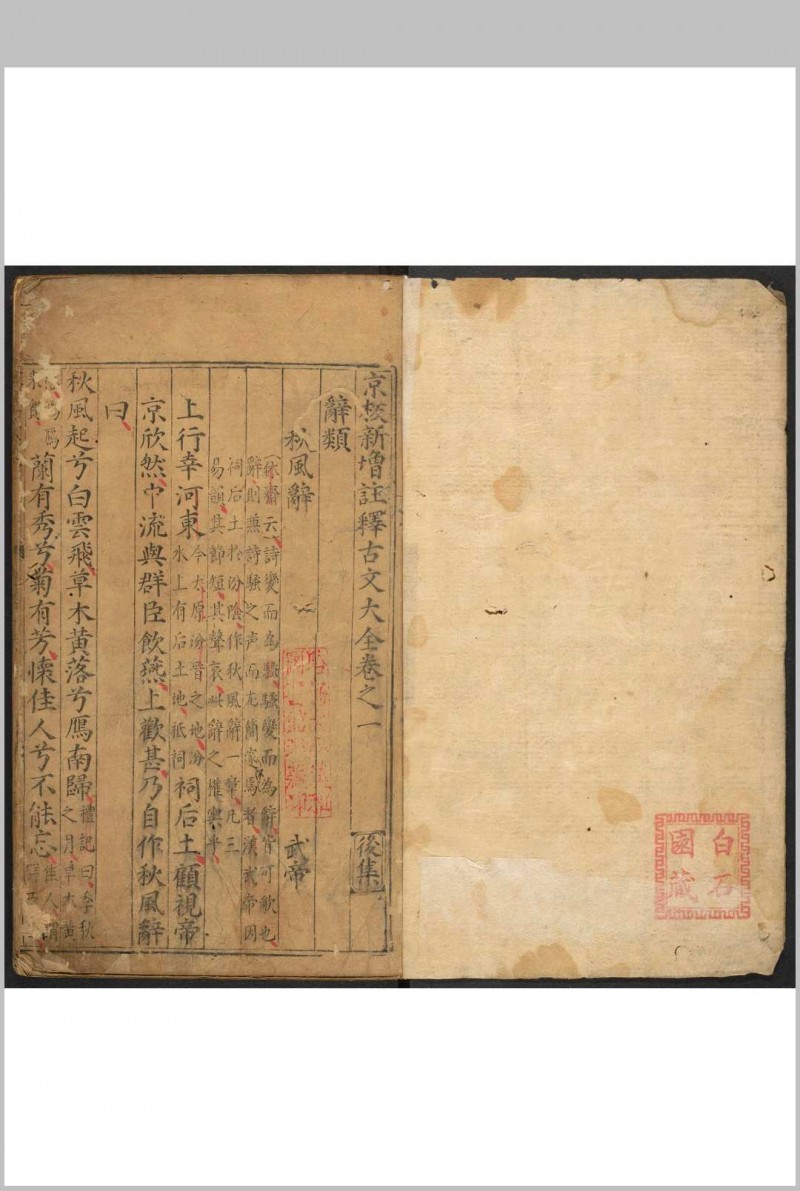 白石
國藏
京校新增註釋古文大全卷之一
後集
辭類
秋風辭
武帝
休齋云詩變而為騷騷變而為辭皆可歌也
辭則兼詩騷之声而尤簡邃焉者漢武帝因
祠后土於汾陰作秋風辭一章凡三
易韻其節短其聲哀此辭之權輿乎
上行幸河東
今太原汾晉之地汾
水上有后土地祇祠
祠后土顧視帝
京欣然中流與群臣飲燕上歡甚乃自作秋風辭
曰
秋風起兮白雲飛草木黃落兮鴈南歸
禮記曰季秋
之月草木黃
蘭有秀兮菊有芳懷佳人兮不能忘
佳人謂